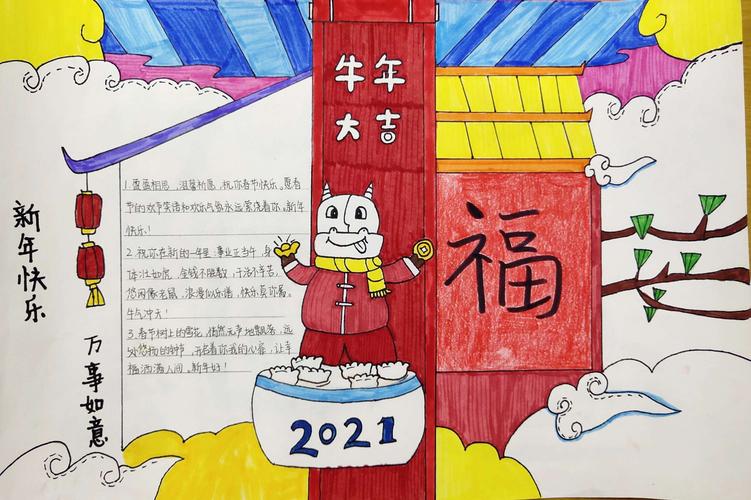 牛年
大吉
新年快乐
万事如意
1. 相思,温馨祈愿,祝你春节快乐。愿春
节的欢声笑语和欢乐气氛永远萦绕着你。新年
快乐!
2.祝你在新的一年里:事业正当午,身
体壮如虎,金钱不胜数,干活不辛苦,
悠闲像老鼠,浪漫似乐谱,快乐莫你属。
牛气冲天!
3.春节树上的雪花,悄然无声地飘落,远
处悠扬的钟声,开启着你我的心窗,让幸
福洒满人间。新年好!
福
2021